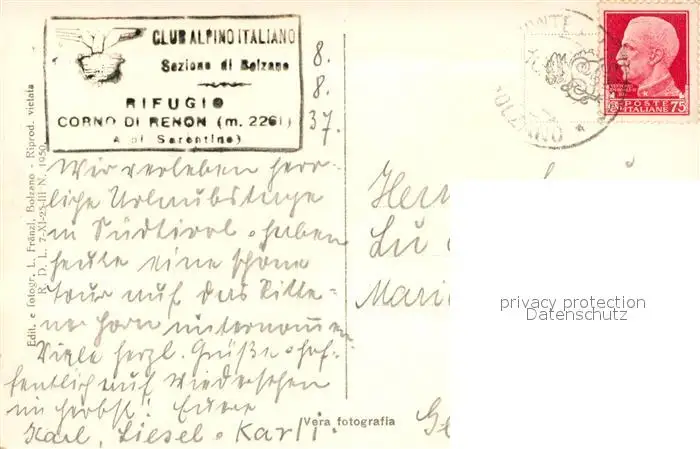 CLUB ALPINO ITALIANO
Sezione di Bolzano
RIFUGIO
CORNO DI RENON (m. 2261)
Sarentino)
8.
8.
37.
Wir verleben herr-
liche Urlaubstage
in Südtirol + haben
heute eine schöne
Tour auf das Ritte-
ner Horn unternommen
Viele herzl. Grüße + hof-
fentlich auf Wiedersehen
im Herbst! Eure
Karl, Liesel + Karli.
Edit. e fotogr. L. Fränzl, Bolzano - Riprod. vietata
R. D. L. 7-XI-25-III N. 1950
Vera fotografia
POSTE
ITALIANE
75
BOLZANO
Lu
privacy protection
Datenschutz